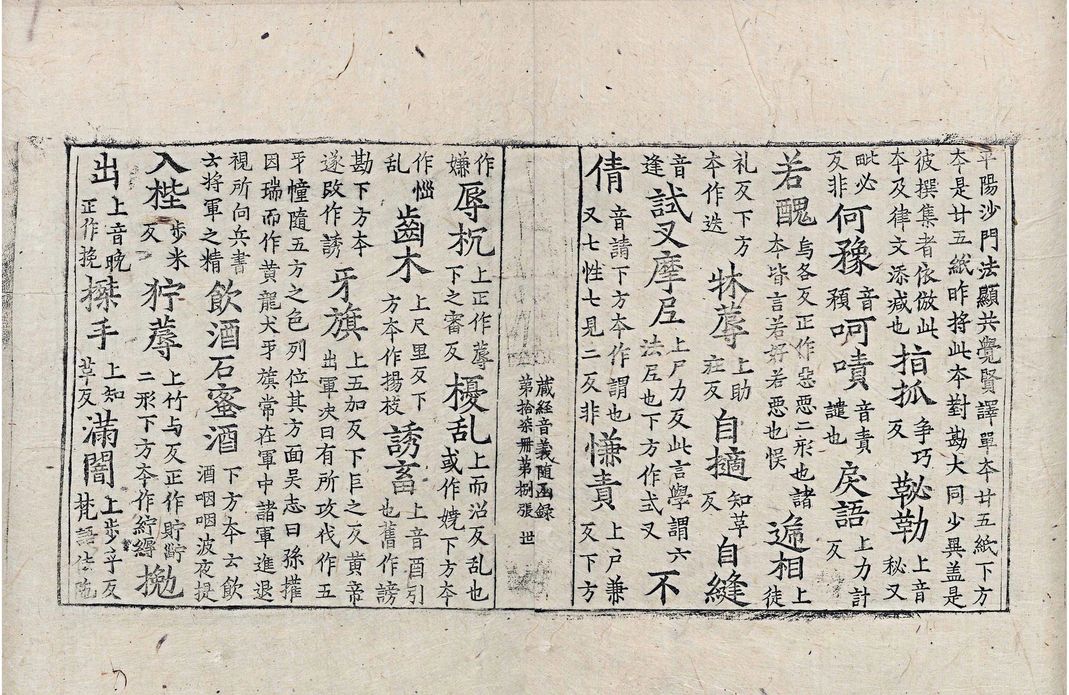 平陽沙門法顯共覺賢譯單本廿五紙下方
本是廿五紙昨將此本對勘大同少異盖是
彼撰集者依倣此本及律文添減也 掐抓 爭巧反 䩛勒 上音秘又
毗必反非 何豫 音預 呵嘖 音責讉也 戾語 上力計反
若醜 烏各反正作惡惡二形也諸本皆言若好若惡也悮 遞相 上徒
礼反下方本作迭 牀蓐 上助莊反 自擿 知革反 自縫
音逢 試叉摩尼 上尸力反此言學謂六法尼也下方作式叉 不
倩 音請下方本作謂也又七性七見二反非 慊責 上戶兼反下方
藏経音義随函録
第拾柒冊第捌張 世
作嫌 蓐枕 上正作蓐下之審反 擾乱 上而沼反乱也或作嬈下方本
作惱乱 齒木 上尺里反下方本作揚枝 誘畜 上音酉引也舊作謗
勘下方本遂改作誘 牙旗 上五加反下巨之反黄帝出軍決曰有所攻伐作五
牙幢隨五方之色列位其方面吴志曰孫權
因瑞而作黄龍大牙旗常在軍中諸軍進退
視所向兵書云將軍之精 飲酒石蜜酒 下方本云飲酒咽咽波夜提
入梐 步米反 㹑蓐 上竹与反正作貯二形下方本作紵縟
出 上音晚正作挽 搩手 上知革反 滿闇 上步乎反梵語